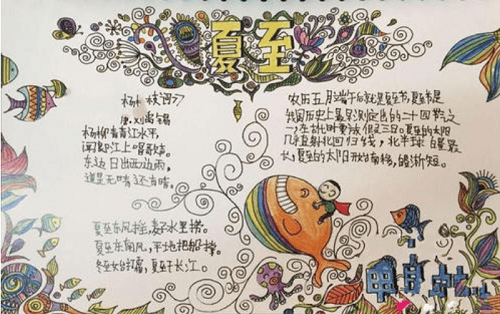 夏至
杨 枝词
唐 刘禹锡
杨柳青青江水平,
闻郎江上唱歌声。
东边日出西边雨,
道是无晴还有晴。
夏至东风摇,
夏至东南风,平地把船撑。
农历五月端午后就是夏至节,夏至是
我国历史上最早测定出的二十四节之
一,在古代时要放假三日。夏至的太阳
几乎直射北回归线,北半球的白昼最
长,夏至的太阳开始南移,白昼渐短。